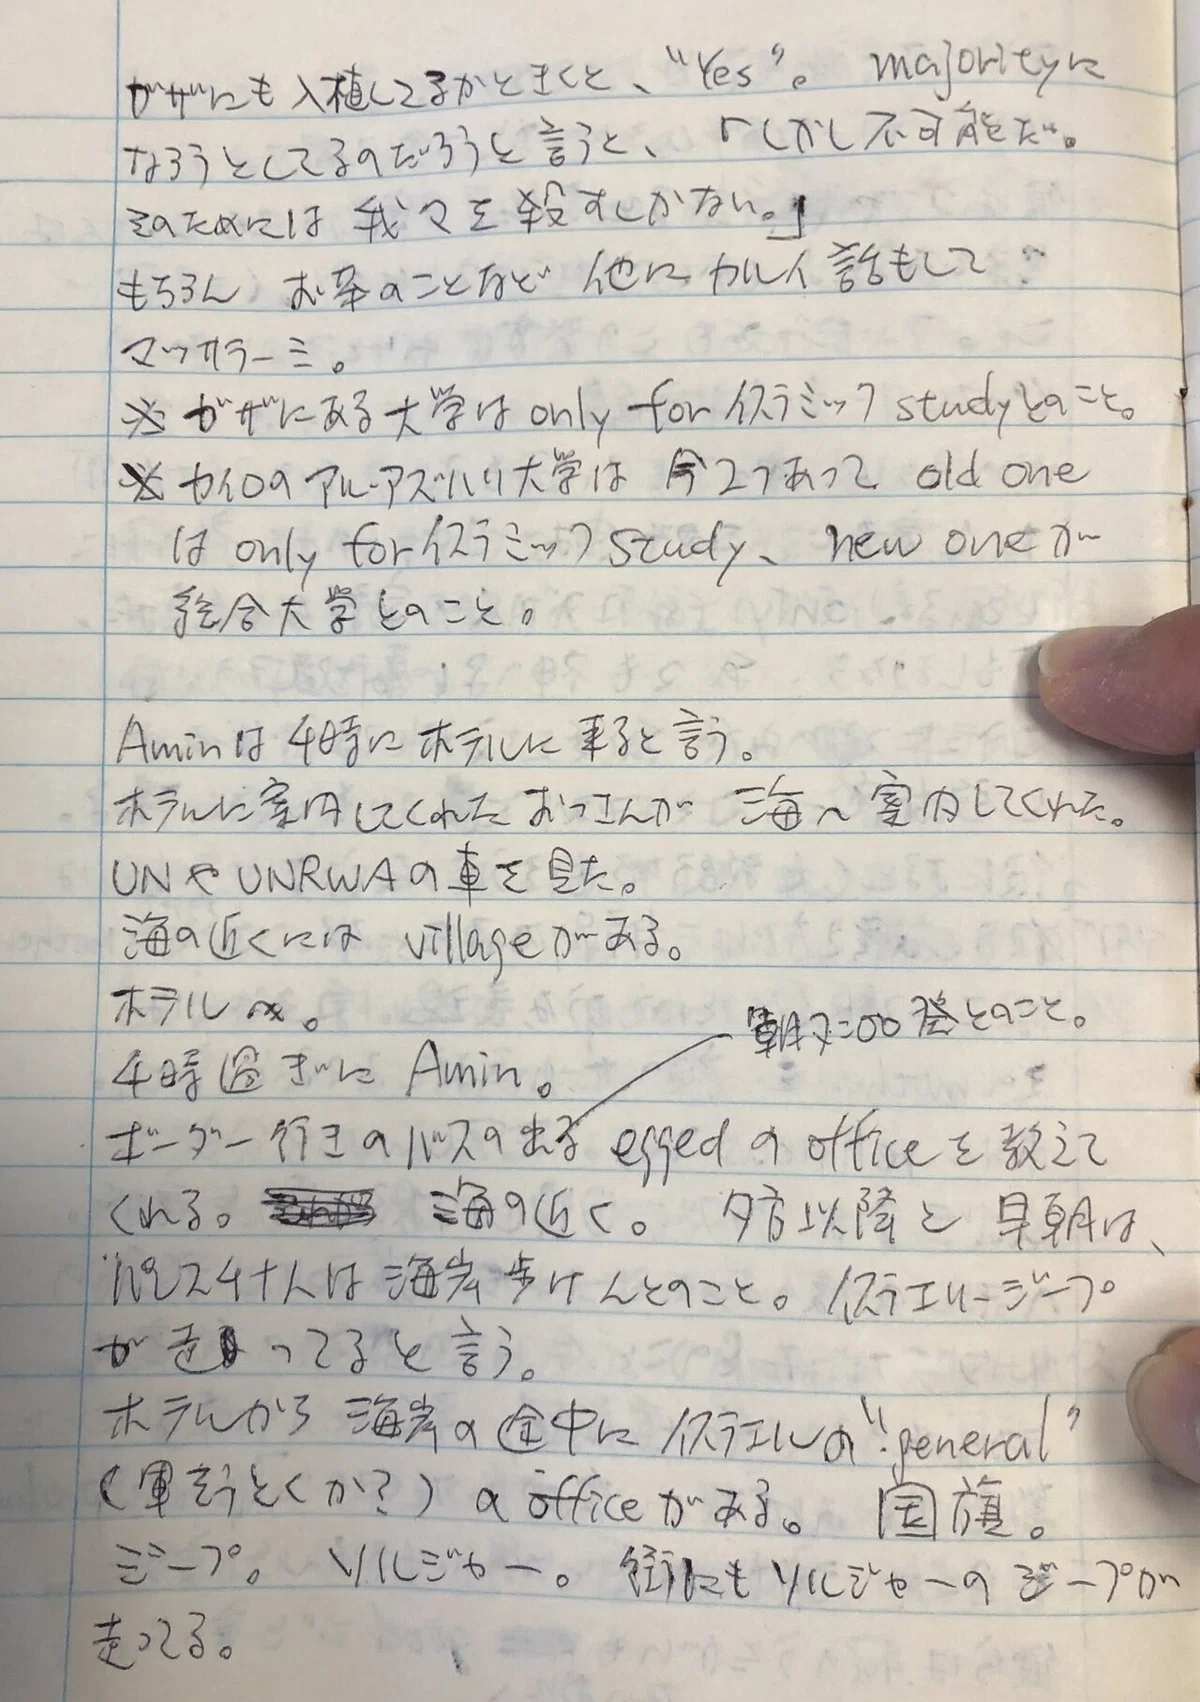 ガザにも入植してるかときくと、“Yes”。 majorityに
なろうとしてるのだろうと言うと、「しかし不可能だ。
そのためには我々を殺すしかない。」
もちろん お茶のことなど 他にカルイ話もして
マッサラーミ。
※ ガザにある大学は only for イスラミック studyとのこと。
※ カイロのアル・アズハリ大学は 今2つあって old one
は only for イスラミック study、 new oneが
総合大学とのこと。
Aminは4時にホテルに来ると言う。
ホテルに案内してくれたおっさんが 海へ案内してくれた。
UNやUNRWAの車を見た。
海の近くには villageがある。
ホテルへ。
朝7:00発とのこと。
4時過ぎに Amin。
ボーダー行きのバスの出る eggedのofficeを教えて
くれる。 海の近く。 夕方以降と早朝は、
パレスチナ人は海岸歩けんとのこと。イスラエリージープ
が走ってると言う。
ホテルから海岸の途中にイスラエルの“general”
(軍とくか?)のofficeがある。 国旗。
ジープ。 ソルジャー。 街にもソルジャーのジープが
走ってる。